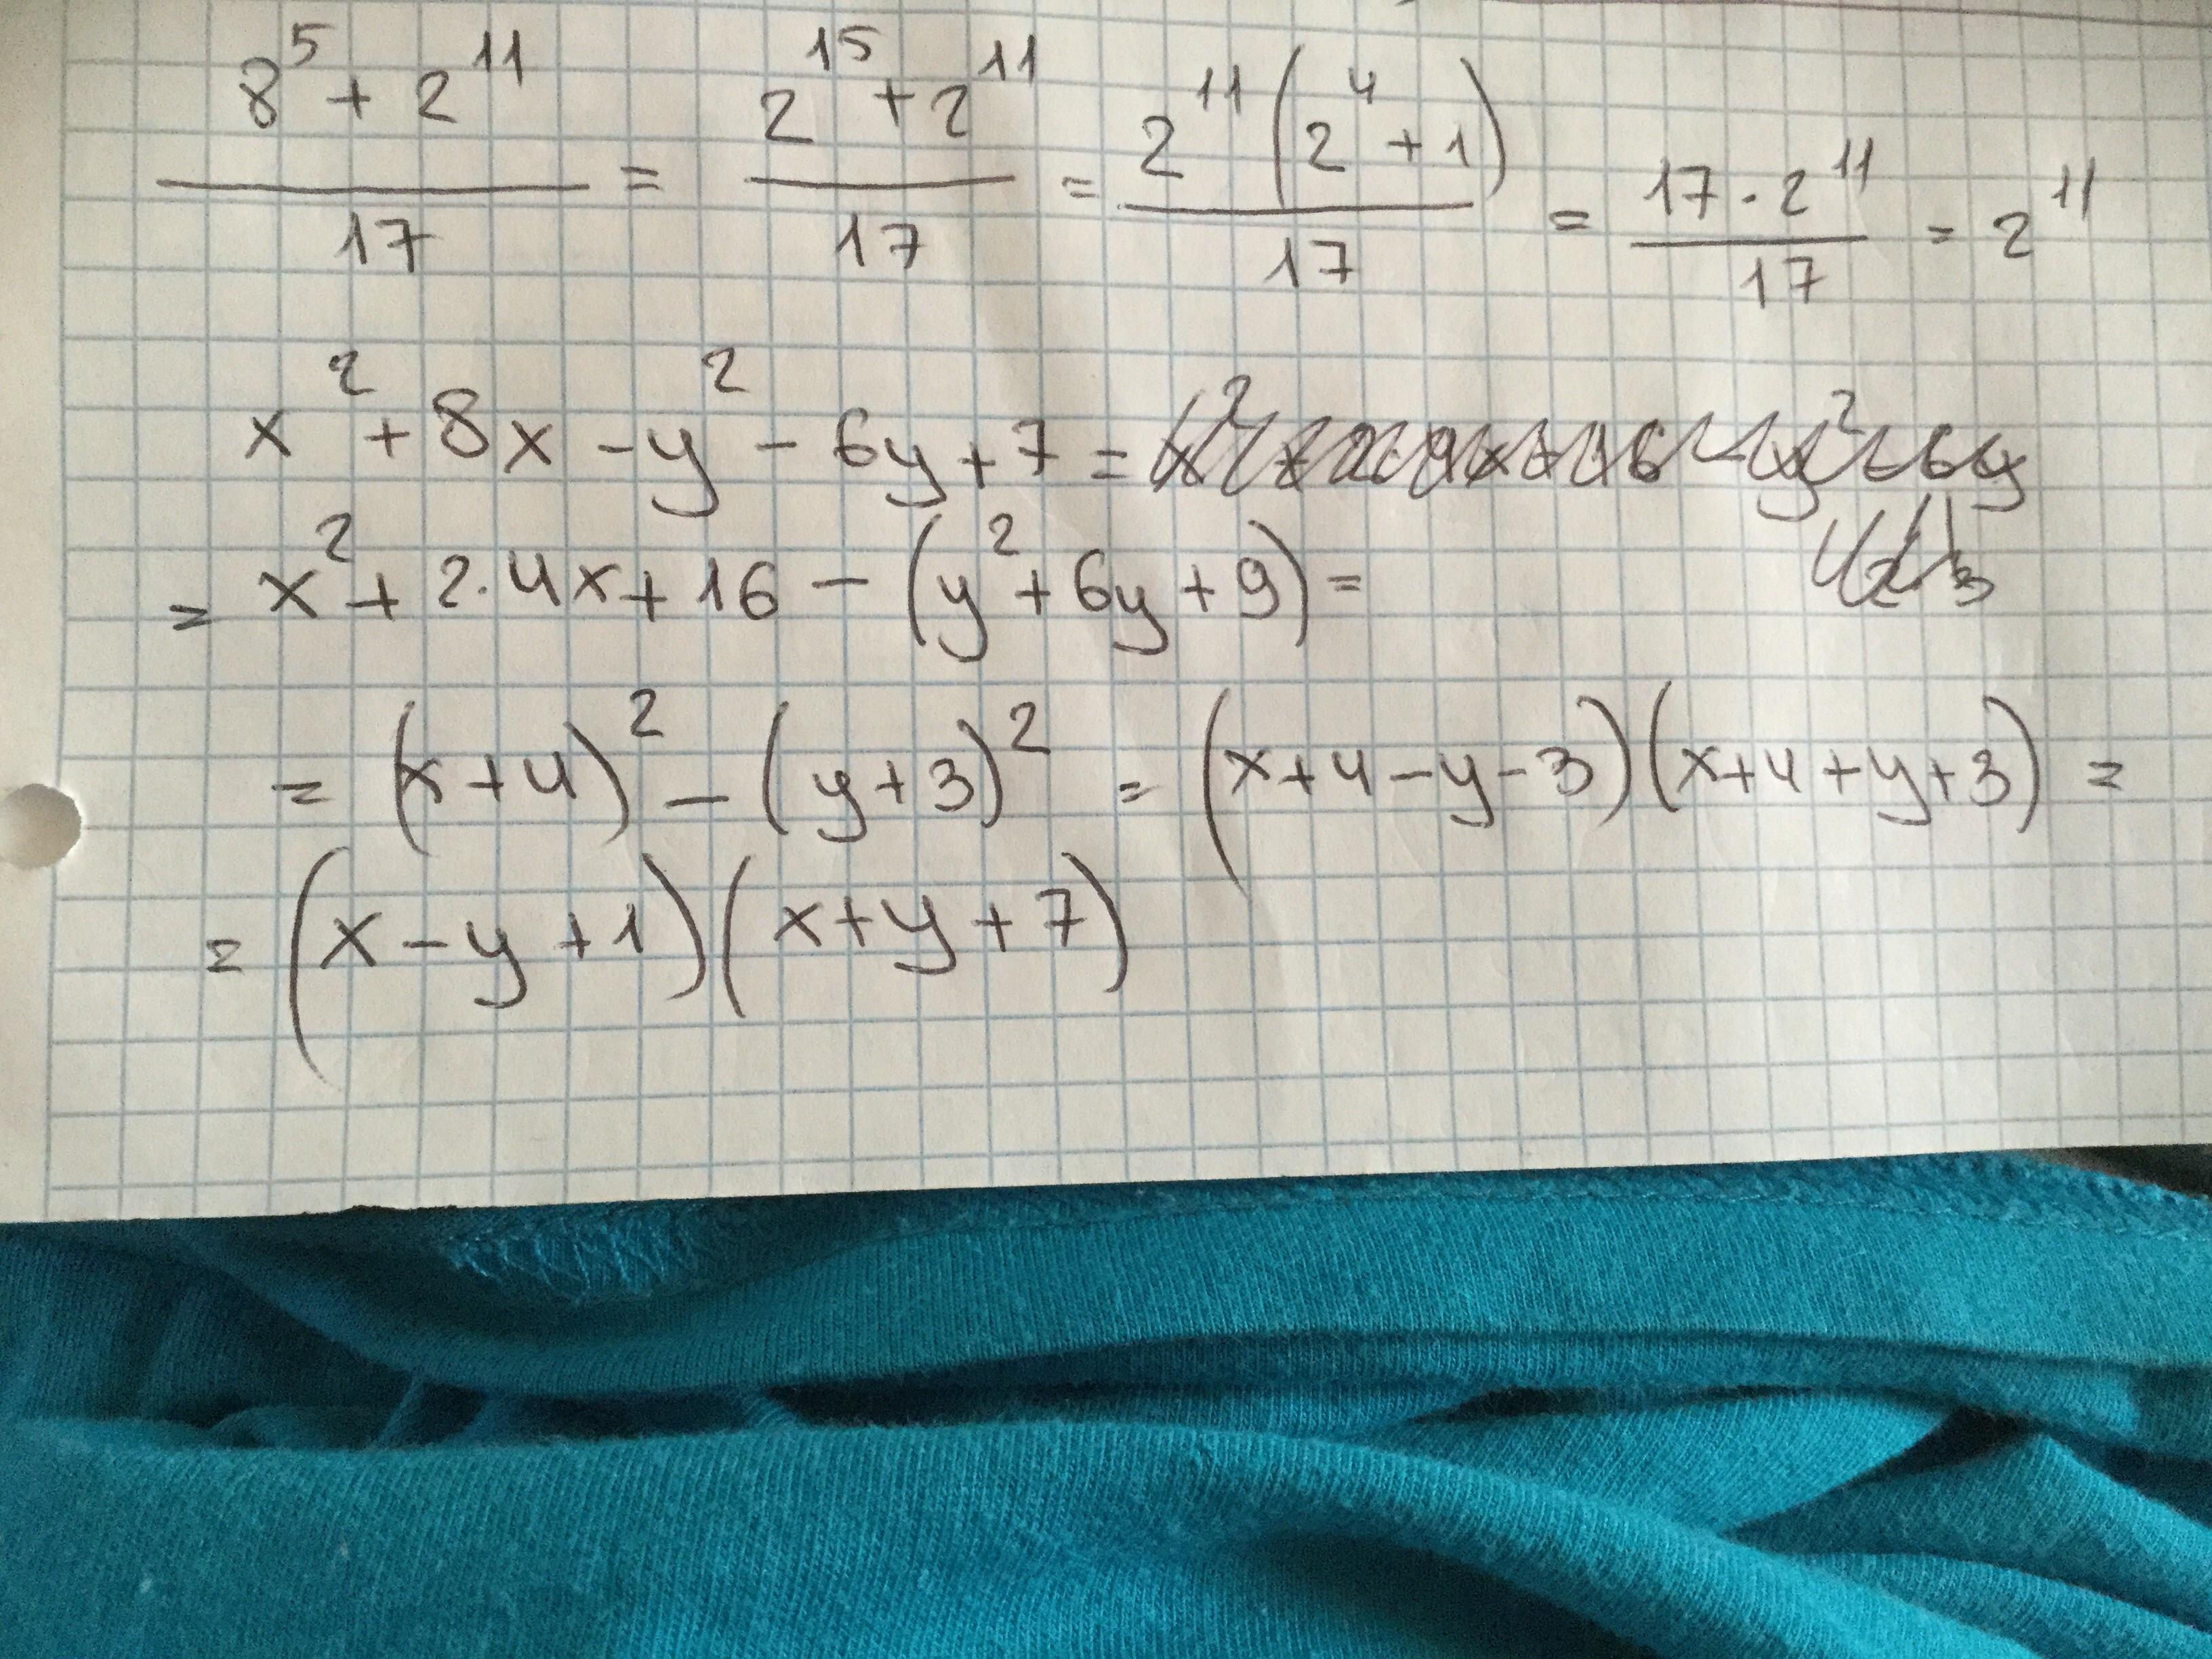 8⁵ + 2¹¹ / 17 = 2¹⁵ + 2¹¹ / 17 = 2¹¹(2⁴ + 1) / 17 = 17 · 2¹¹ / 17 = 2¹¹
x² + 8x - y² - 6y + 7 =
= x² + 2·4x + 16 - (y² + 6y + 9) =
= (x + 4)² - (y + 3)² = (x + 4 - y - 3)(x + 4 + y + 3) =
= (x - y + 1)(x + y + 7)